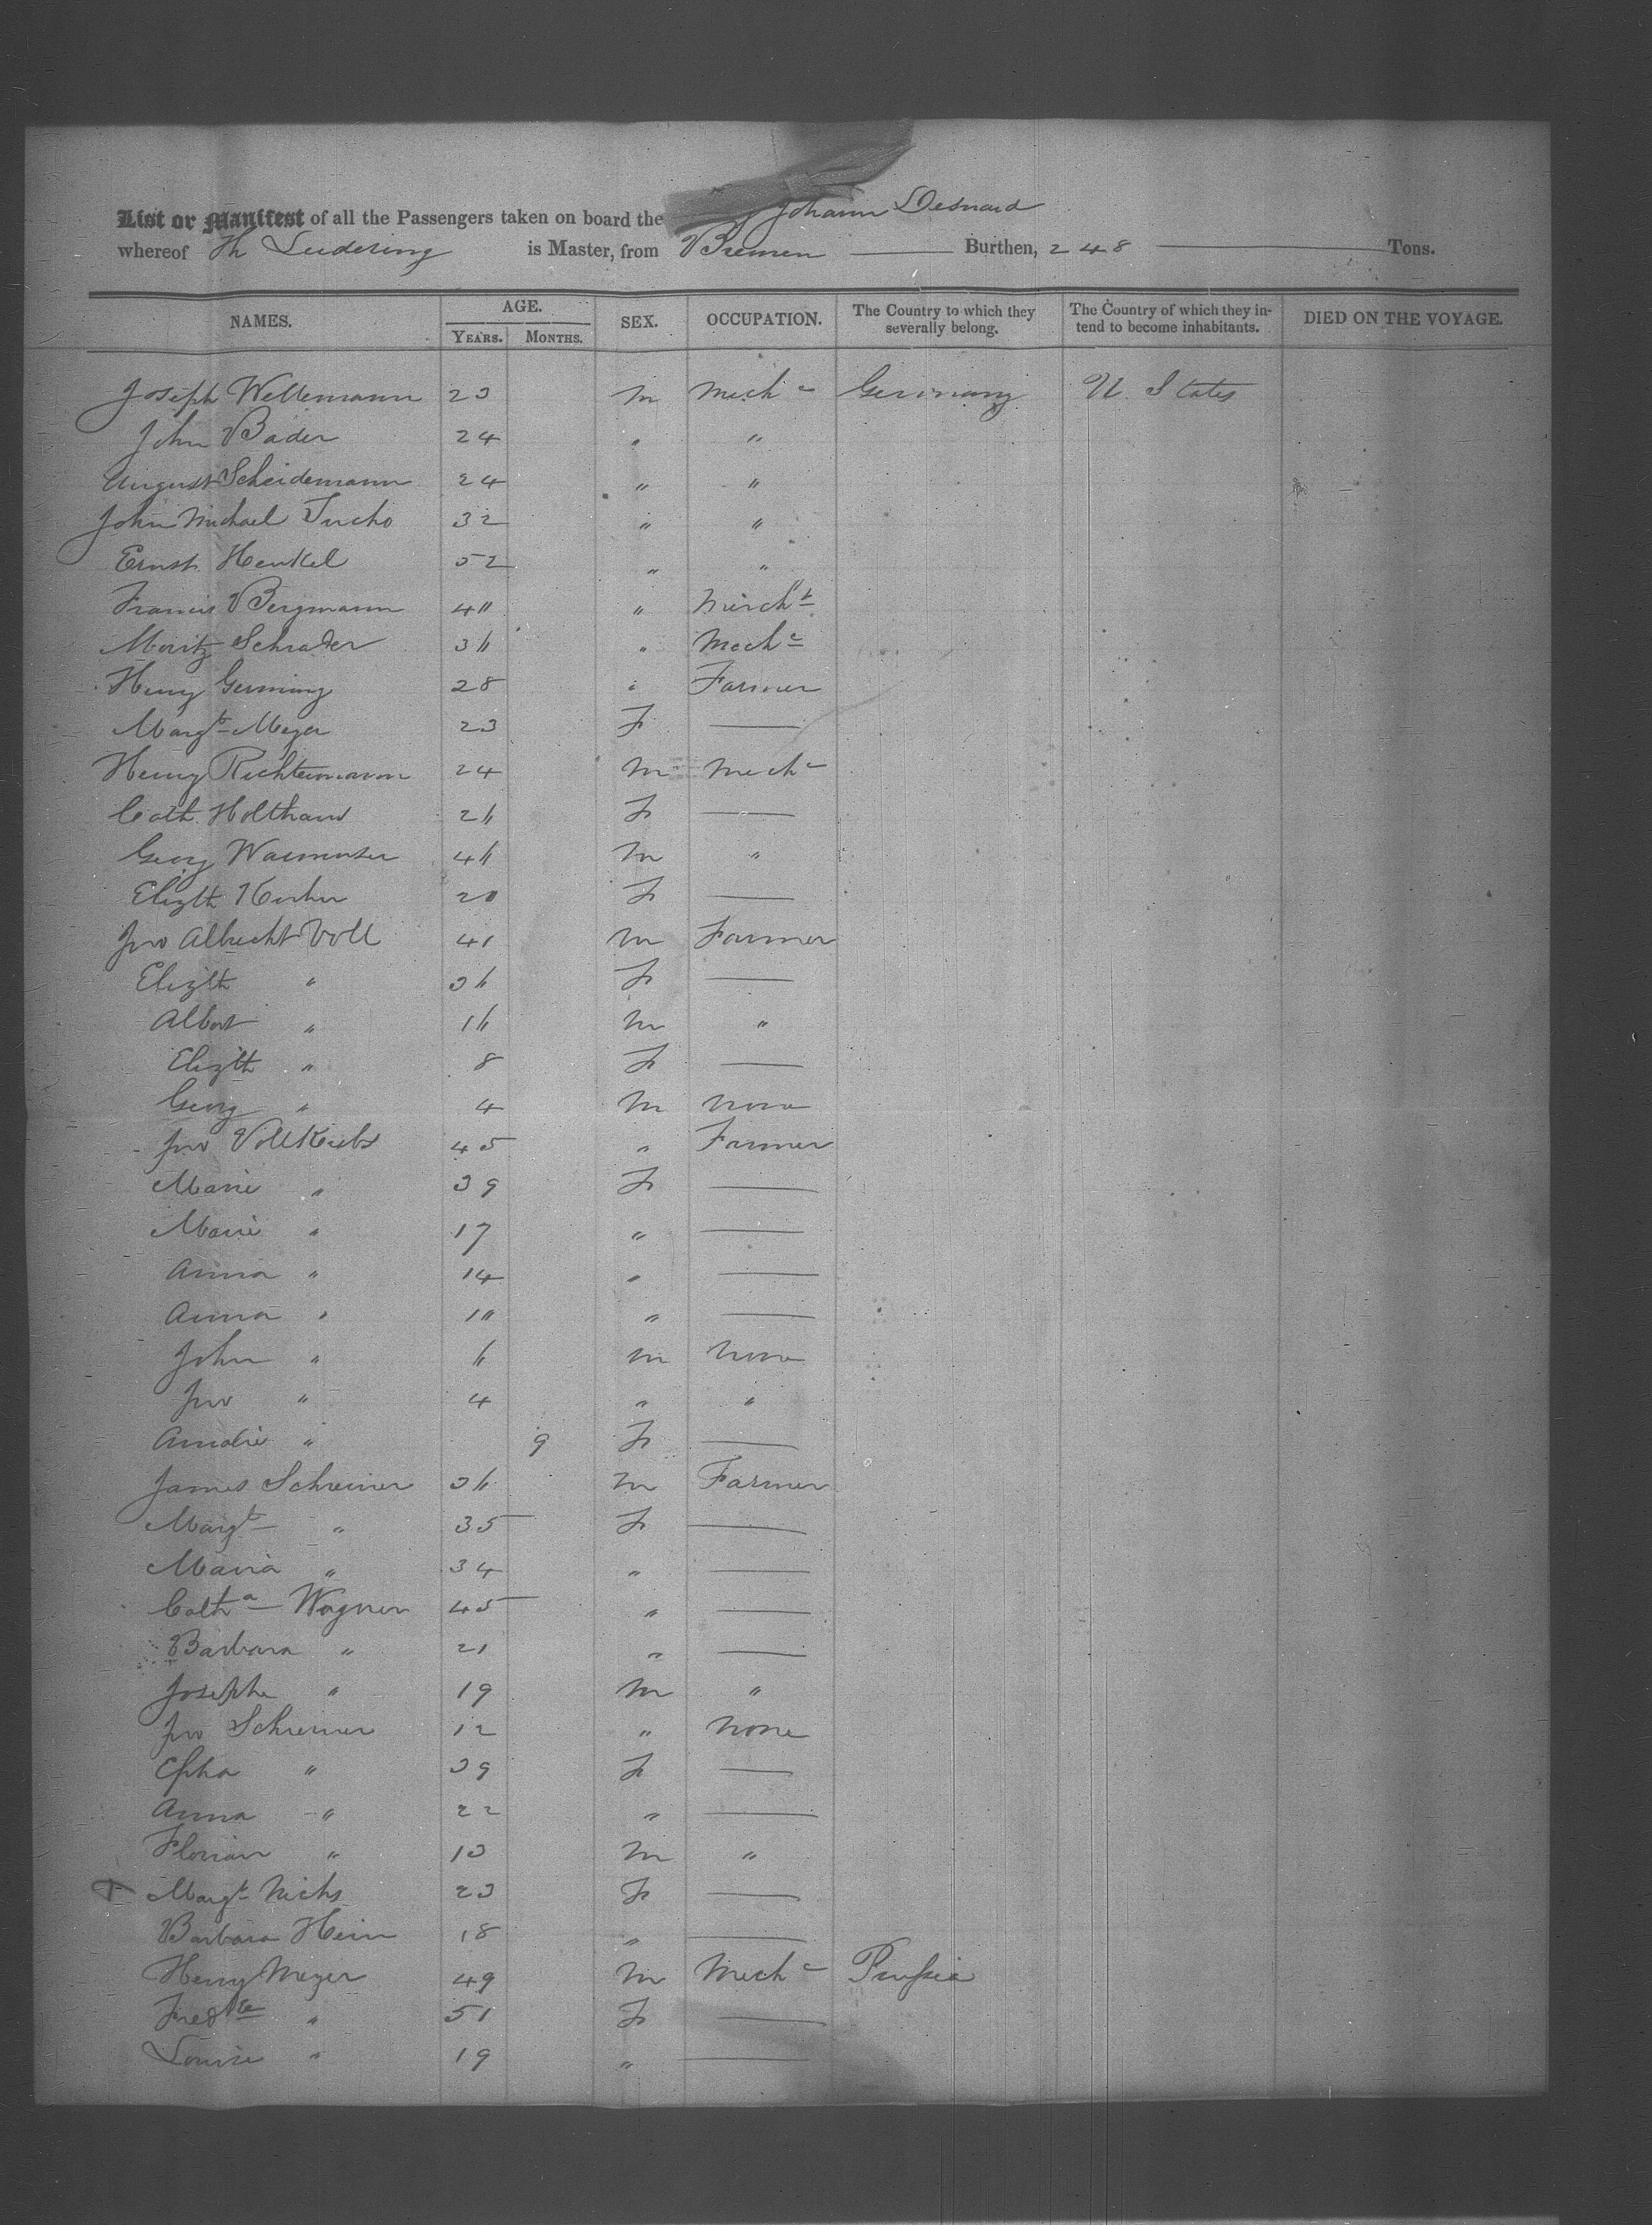 List or Manifest of all the Passengers taken on board the Johann Desnard
whereof Th Ludering is Master, from Bremen Burthen, 248 Tons.
NAMES. AGE. YEARS. MONTHS. SEX. OCCUPATION. The Country to which they severally belong. The Country of which they intend to become inhabitants. DIED ON THE VOYAGE.
Joseph Weltemann 23 M Mechc Germany U. States
John Bader 24 " "
August Scheidemann 24 " "
John Michael Tucho 32 " "
Ernst Henkel 52 " "
Francis Bergmann 40 " Mercht
Moritz Schrader 36 " Mechc
Henry Germing 28 " Farmer
Margt Meyer 23 F —
Henry Richtermann 24 M Mechc
Cath. Holthaus 26 F —
Georg 46 M "
Elizth 20 F —
Jno Albrecht Voll 41 M Farmer
Elizth " 36 F —
Albert " 16 M "
Elizth " 8 F —
Georg " 4 M none
Jno 45 " Farmer
Marie " 39 F —
Marie " 17 " —
Anna " 14 " —
Anna " 10 " —
John " 6 M none
Jno " 4 " "
Amalie " 9 F —
James Schreiner 36 M Farmer
Margt " 35 F —
Maria " 34 " —
Catha Wagner 45 " —
Barbara " 21 " —
Josepha " 19 M "
Jno Schreiner 12 " none
" 39 F —
Anna " 22 " —
Florian " 13 M "
Margt Nichs 23 F —
Barbara Hein 18 " —
Henry Meyer 49 M Mechc Prussia
Fredke " 51 F —
Louise " 19 " —